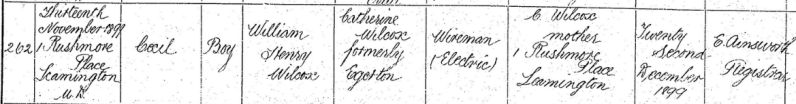 262
Thirteenth
November 1899
1 Rushmore
Place
Leamington
U.D.
Cecil
Boy
William
Henry
Wilcox
Catherine
Wilcox
formerly
Egerton
Wireman
(Electric)
C. Wilcox
mother
1 Rushmore
Place
Leamington
Twenty
Second
December
1899
E. Ainsworth
Registrar